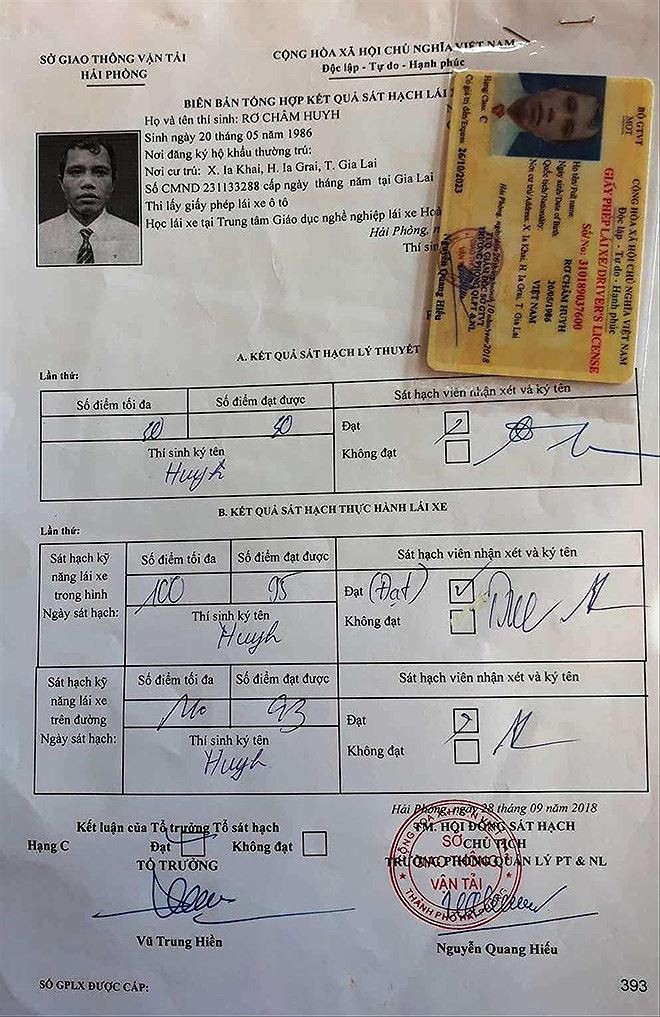 SỞ GIAO THÔNG VẬN TẢI
HẢI PHÒNG
CỘNG HÒA XÃ HỘI CHỦ NGHĨA VIỆT NAM
Độc lập - Tự do - Hạnh phúc
BIÊN BẢN TỔNG HỢP KẾT QUẢ SÁT HẠCH LÁI
Họ và tên thí sinh: RƠ CHÂM HUYH
Sinh ngày 20 tháng 05 năm 1986
Nơi đăng ký hộ khẩu thường trú:
Nơi cư trú: X. Ia Khai, H. Ia Grai, T. Gia Lai
Số CMND 231133288 cấp ngày tháng năm tại Gia Lai
Thi lấy giấy phép lái xe ô tô
Học lái xe tại Trung tâm Giáo dục nghề nghiệp lái xe Hoà
Hải Phòng,
Thí sinh
BỘ GTVT
MOT
CỘNG HÒA XÃ HỘI CHỦ NGHĨA VIỆT NAM
Độc lập - Tự do - Hạnh phúc
GIẤY PHÉP LÁI XE/DRIVER'S LICENSE
Số/No: 310189037600
Họ tên/Full name: RƠ CHÂM HUYH
Ngày sinh/Date of Birth: 20/05/1986
Quốc tịch/Nationality: VIỆT NAM
Nơi cư trú/Address: X. Ia Khai, H. Ia Grai, T. Gia Lai
Hải Phòng, ngày/date 26 tháng/month 10 năm/year 2018
TUQ. GIÁM ĐỐC SỞ GTVT
TRƯỞNG PHÒNG QLPT & NL
Nguyễn Quang Hiếu
Hạng/Class: C
Có giá trị đến/Expires: 26/10/2023
A. KẾT QUẢ SÁT HẠCH LÝ THUYẾT
Lần thứ:
Số điểm tối đa Số điểm đạt được Sát hạch viên nhận xét và ký tên
30 30 Đạt
Không đạt
Thí sinh ký tên
Huyh
B. KẾT QUẢ SÁT HẠCH THỰC HÀNH LÁI XE
Lần thứ:
Sát hạch kỹ năng lái xe trong hình Số điểm tối đa Số điểm đạt được Sát hạch viên nhận xét và ký tên
100 95 Đạt (Đạt)
Ngày sát hạch: Thí sinh ký tên Không đạt
Huyh
Sát hạch kỹ năng lái xe trên đường Số điểm tối đa Số điểm đạt được Sát hạch viên nhận xét và ký tên
100 93 Đạt
Ngày sát hạch: Thí sinh ký tên Không đạt
Huyh
Hải Phòng, ngày 28 tháng 09 năm 2018
Kết luận của Tổ trưởng Tổ sát hạch
TM. HỘI ĐỒNG SÁT HẠCH
Hạng C Đạt Không đạt
CHỦ TỊCH
TỔ TRƯỞNG
TRƯỞNG PHÒNG QUẢN LÝ PT & NL
SỞ
GIAO THÔNG
VẬN TẢI
THÀNH PHỐ HẢI PHÒNG
Vũ Trung Hiền
Nguyễn Quang Hiếu
SỐ GPLX ĐƯỢC CẤP:
393